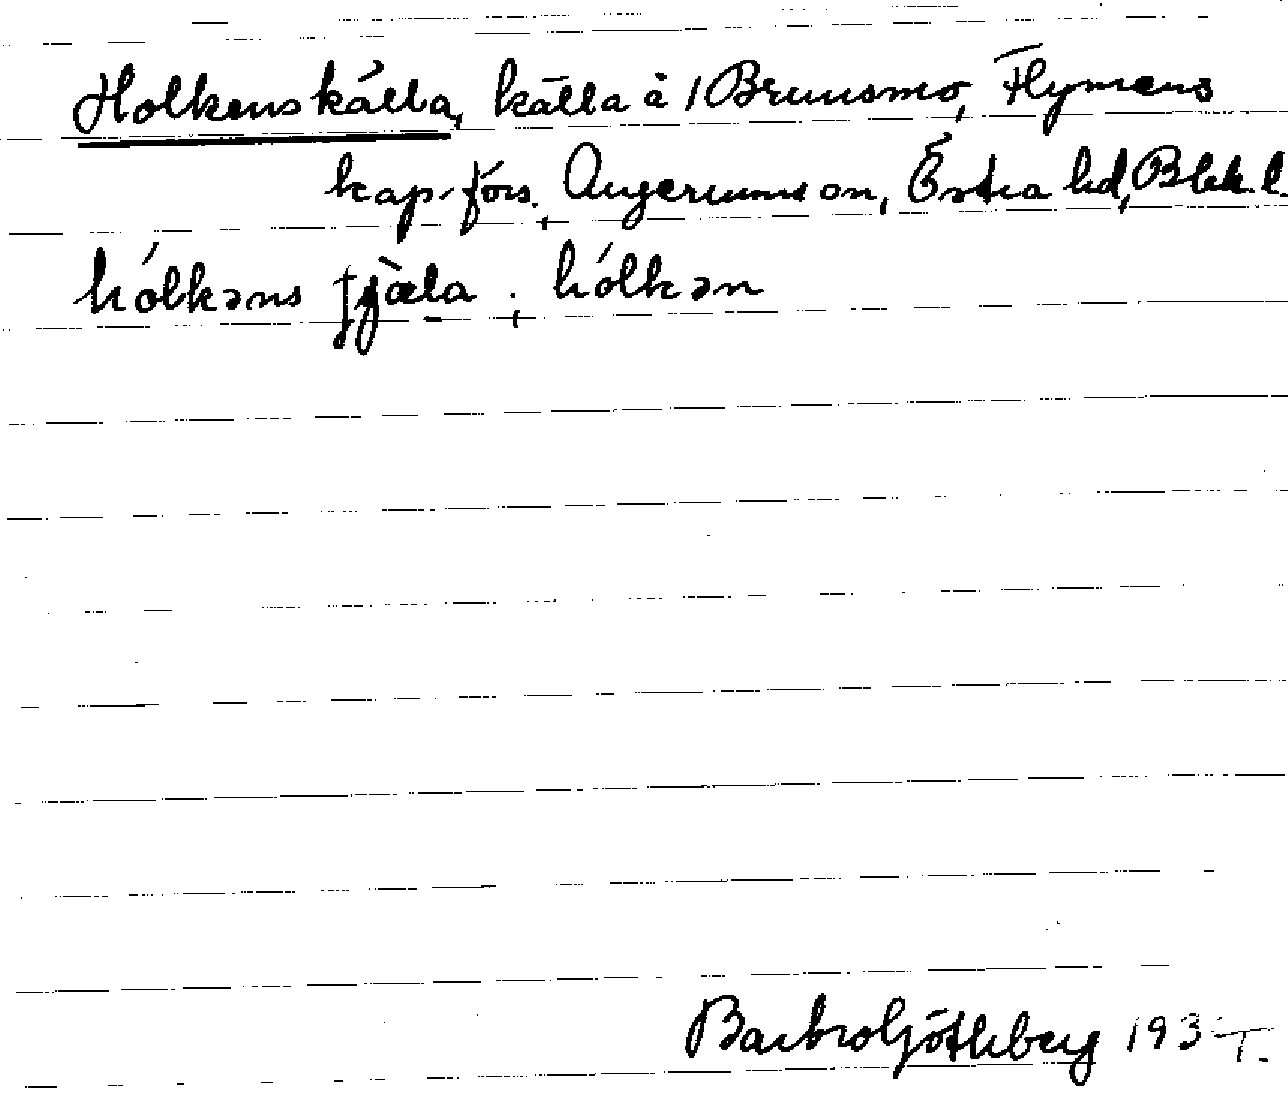 Holkens källa, källa å 1 Brunsmo, Flymens
kap.förs., Augerums sn, Östra hd, Blek. l.
hólkəns fjæla ; hólkən
Barbro Götheberg 193